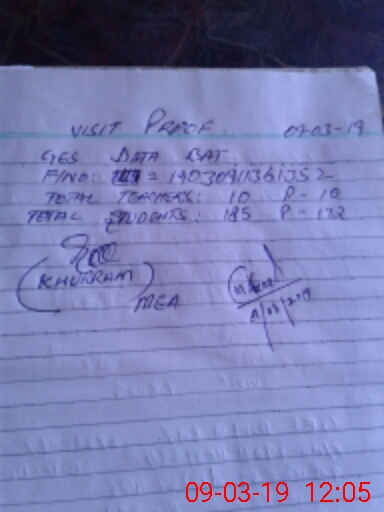 VISIT PROOF 09-03-19
GES DATA BAT
FIND: = 19030911361352
TOTAL TEACHERS: 10 P-10
TOTAL STUDENTS: 185 P-172
(KHURRAM)
MEA
09-03-19 12:05